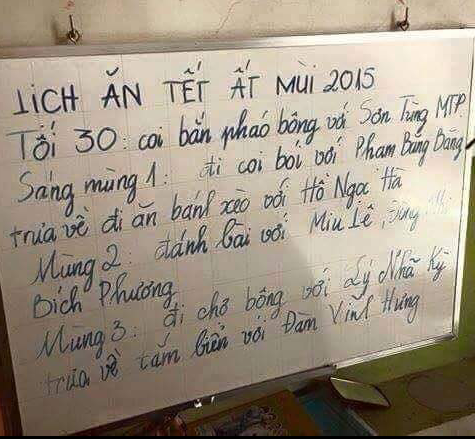 LỊCH ĂN TẾT ẤT MÙI 2015
Tối 30: coi bắn pháo bông với Sơn Tùng MTP.
Sáng mùng 1: đi coi bói với Phạm Băng Băng
trưa về đi ăn bánh xèo với Hồ Ngọc Hà
Mùng 2: đánh bài với Miu Lê, Đông Nhi
Bích Phương,
Mùng 3: đi chợ bông với Lý Nhã Kỳ
trưa về tắm biển với Đàm Vĩnh Hưng